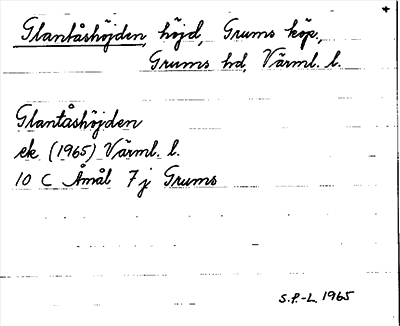 Glantåshöjden, höjd, Grums köp.,
Grums hd, Värml. l.
Glantåshöjden
ek (1965) Värml. l.
10 C Åmål 7j Grums
S.P.-L. 1965